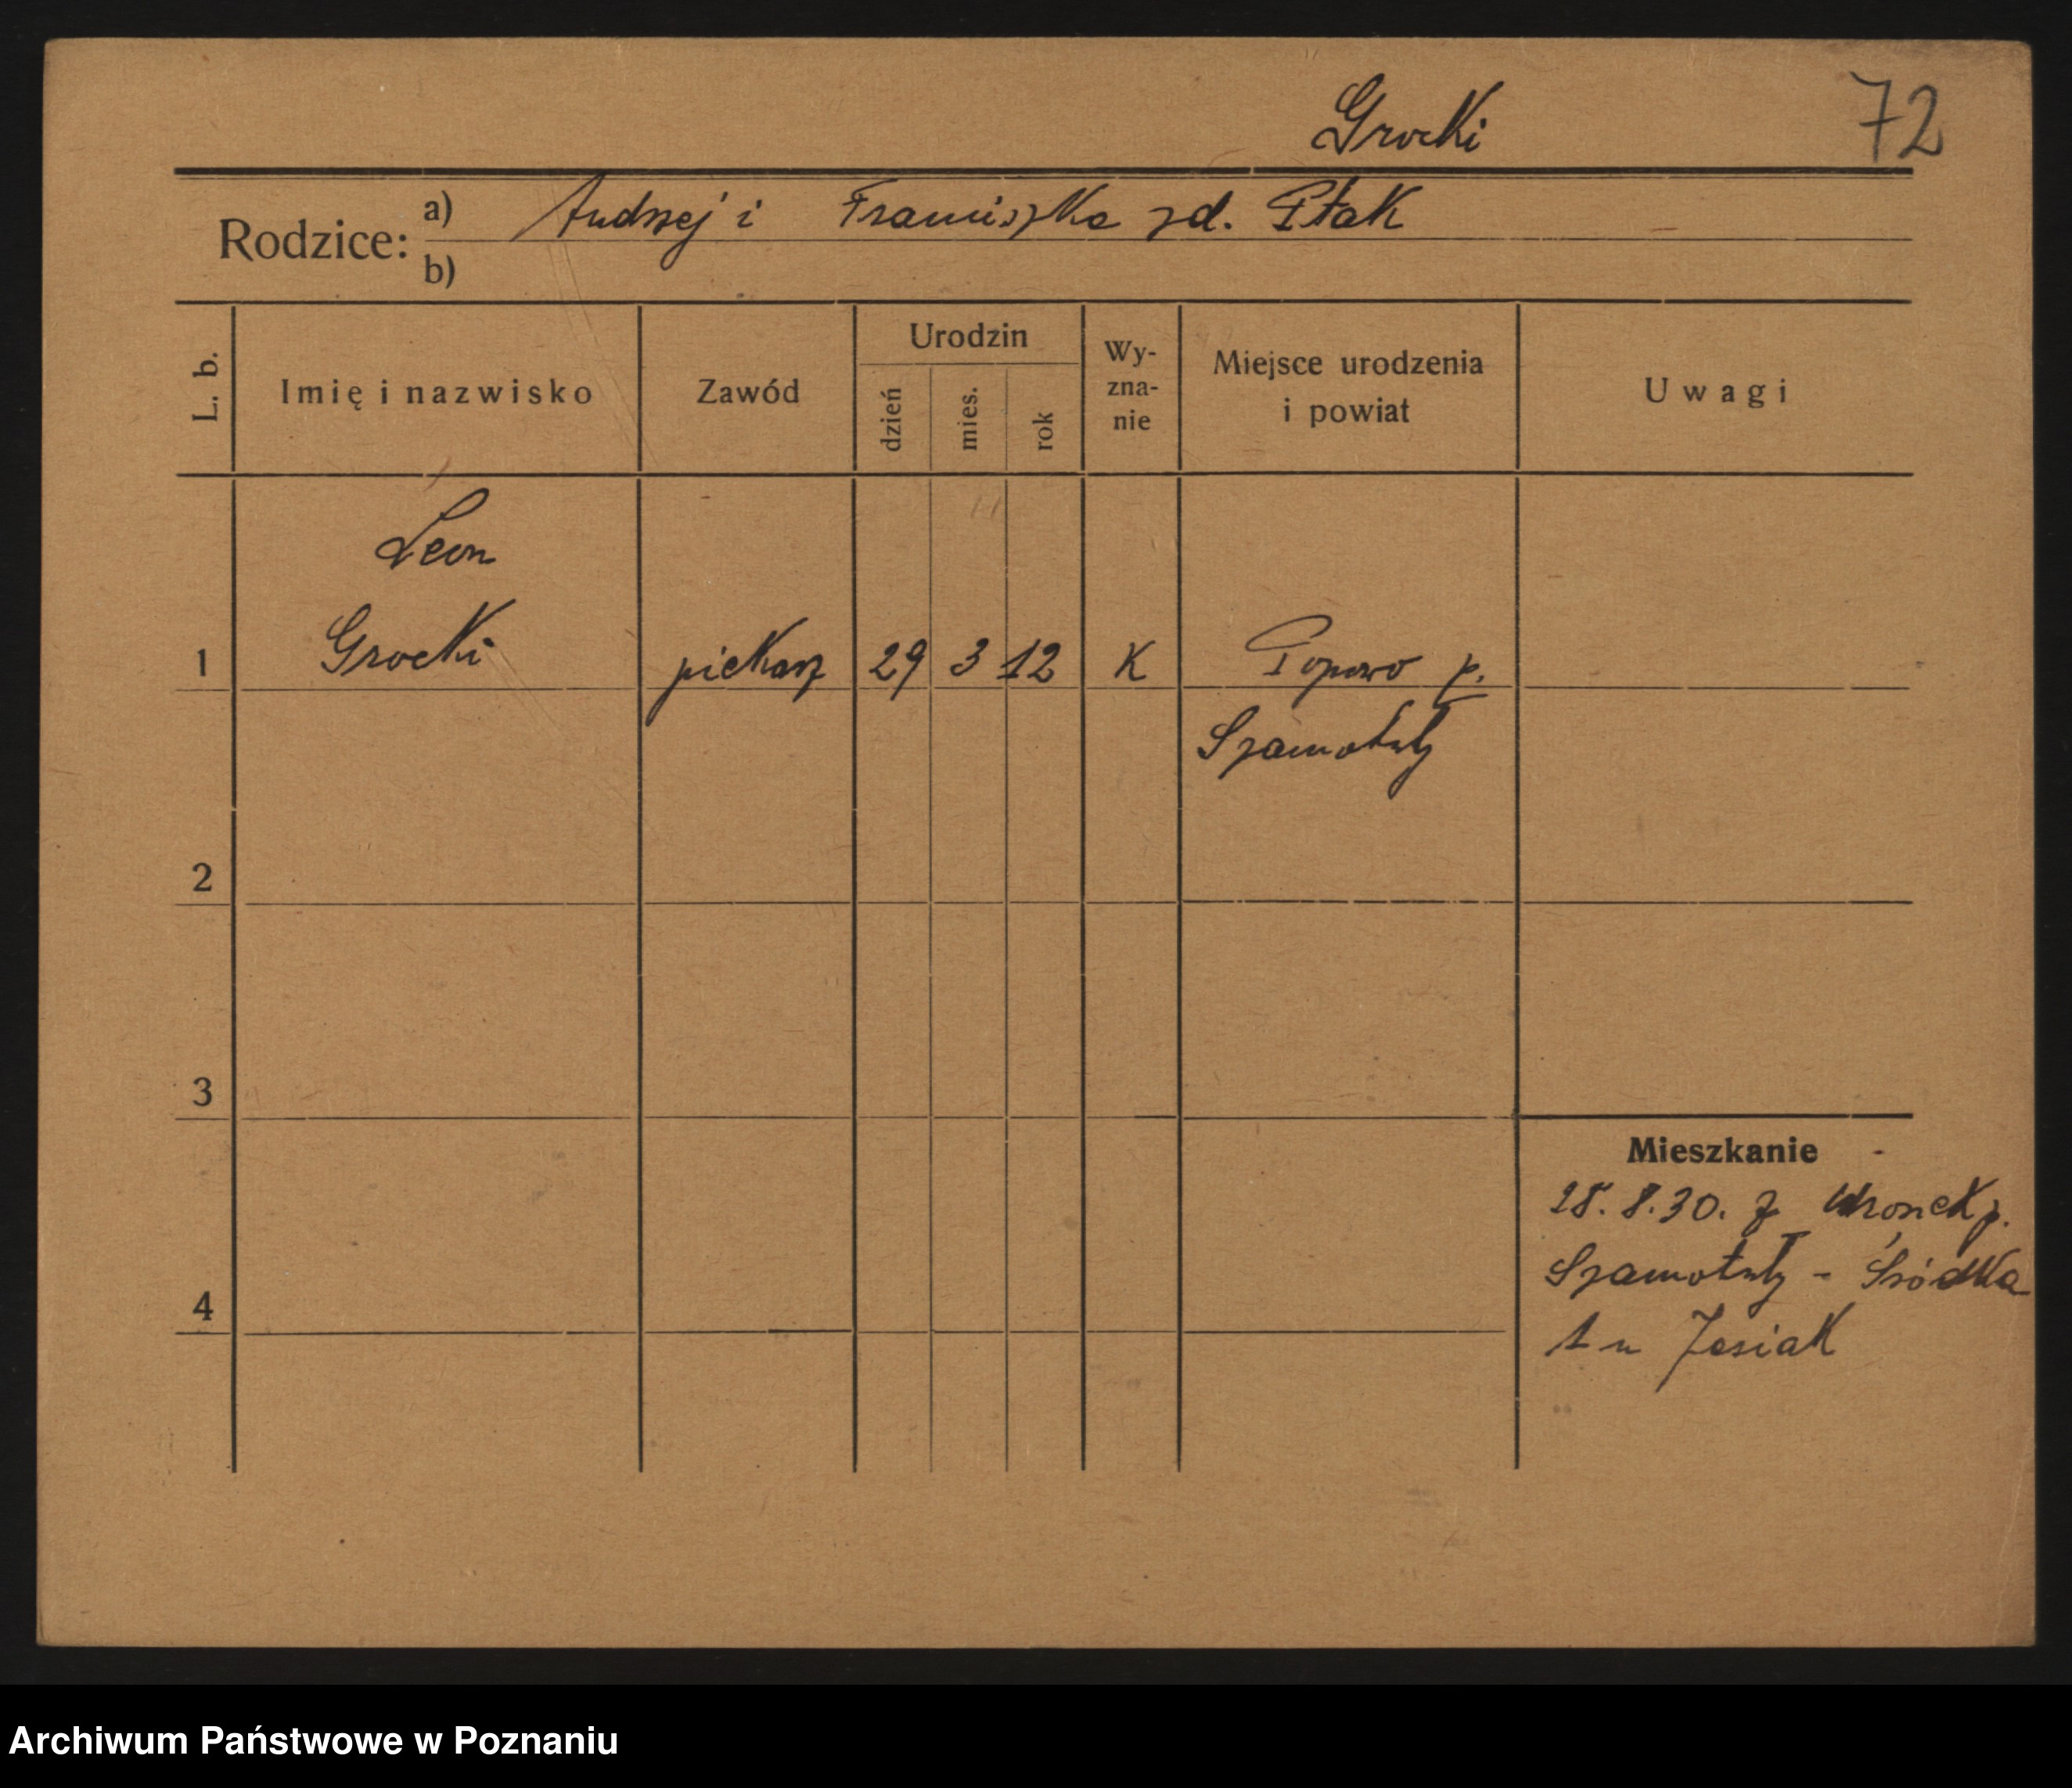 Grocki
72
Rodzice:
a) Andrzej i Franciszka zd. Ptak
b)
L. b.
Imię i nazwisko
Zawód
Urodzin
dzień
mies.
rok
Wy-
zna-
nie
Miejsce urodzenia
i powiat
Uwagi
Leon
1 Grocki piekarz 29 3 12 K Popowo p.
Szamotuły
2
3
4
Mieszkanie
28.8.30. z Wronek p.
Szamotuły - Śródka
1 u Jesiak
Archiwum Państwowe w Poznaniu